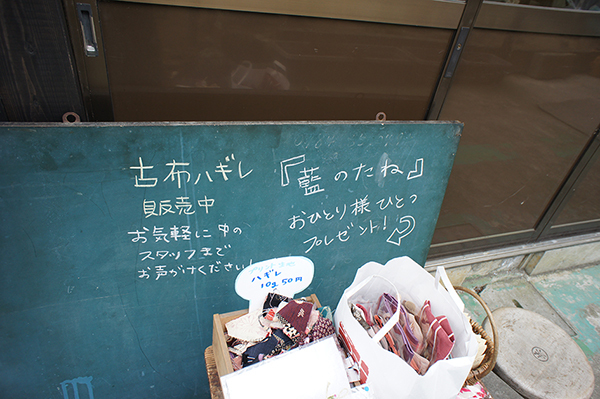 古布ハギレ
販売中
お気軽に中の
スタッフまで
お声がけください!
『藍のたね』
おひとり様ひとつ
プレゼント!
ハギレ
10g 50円